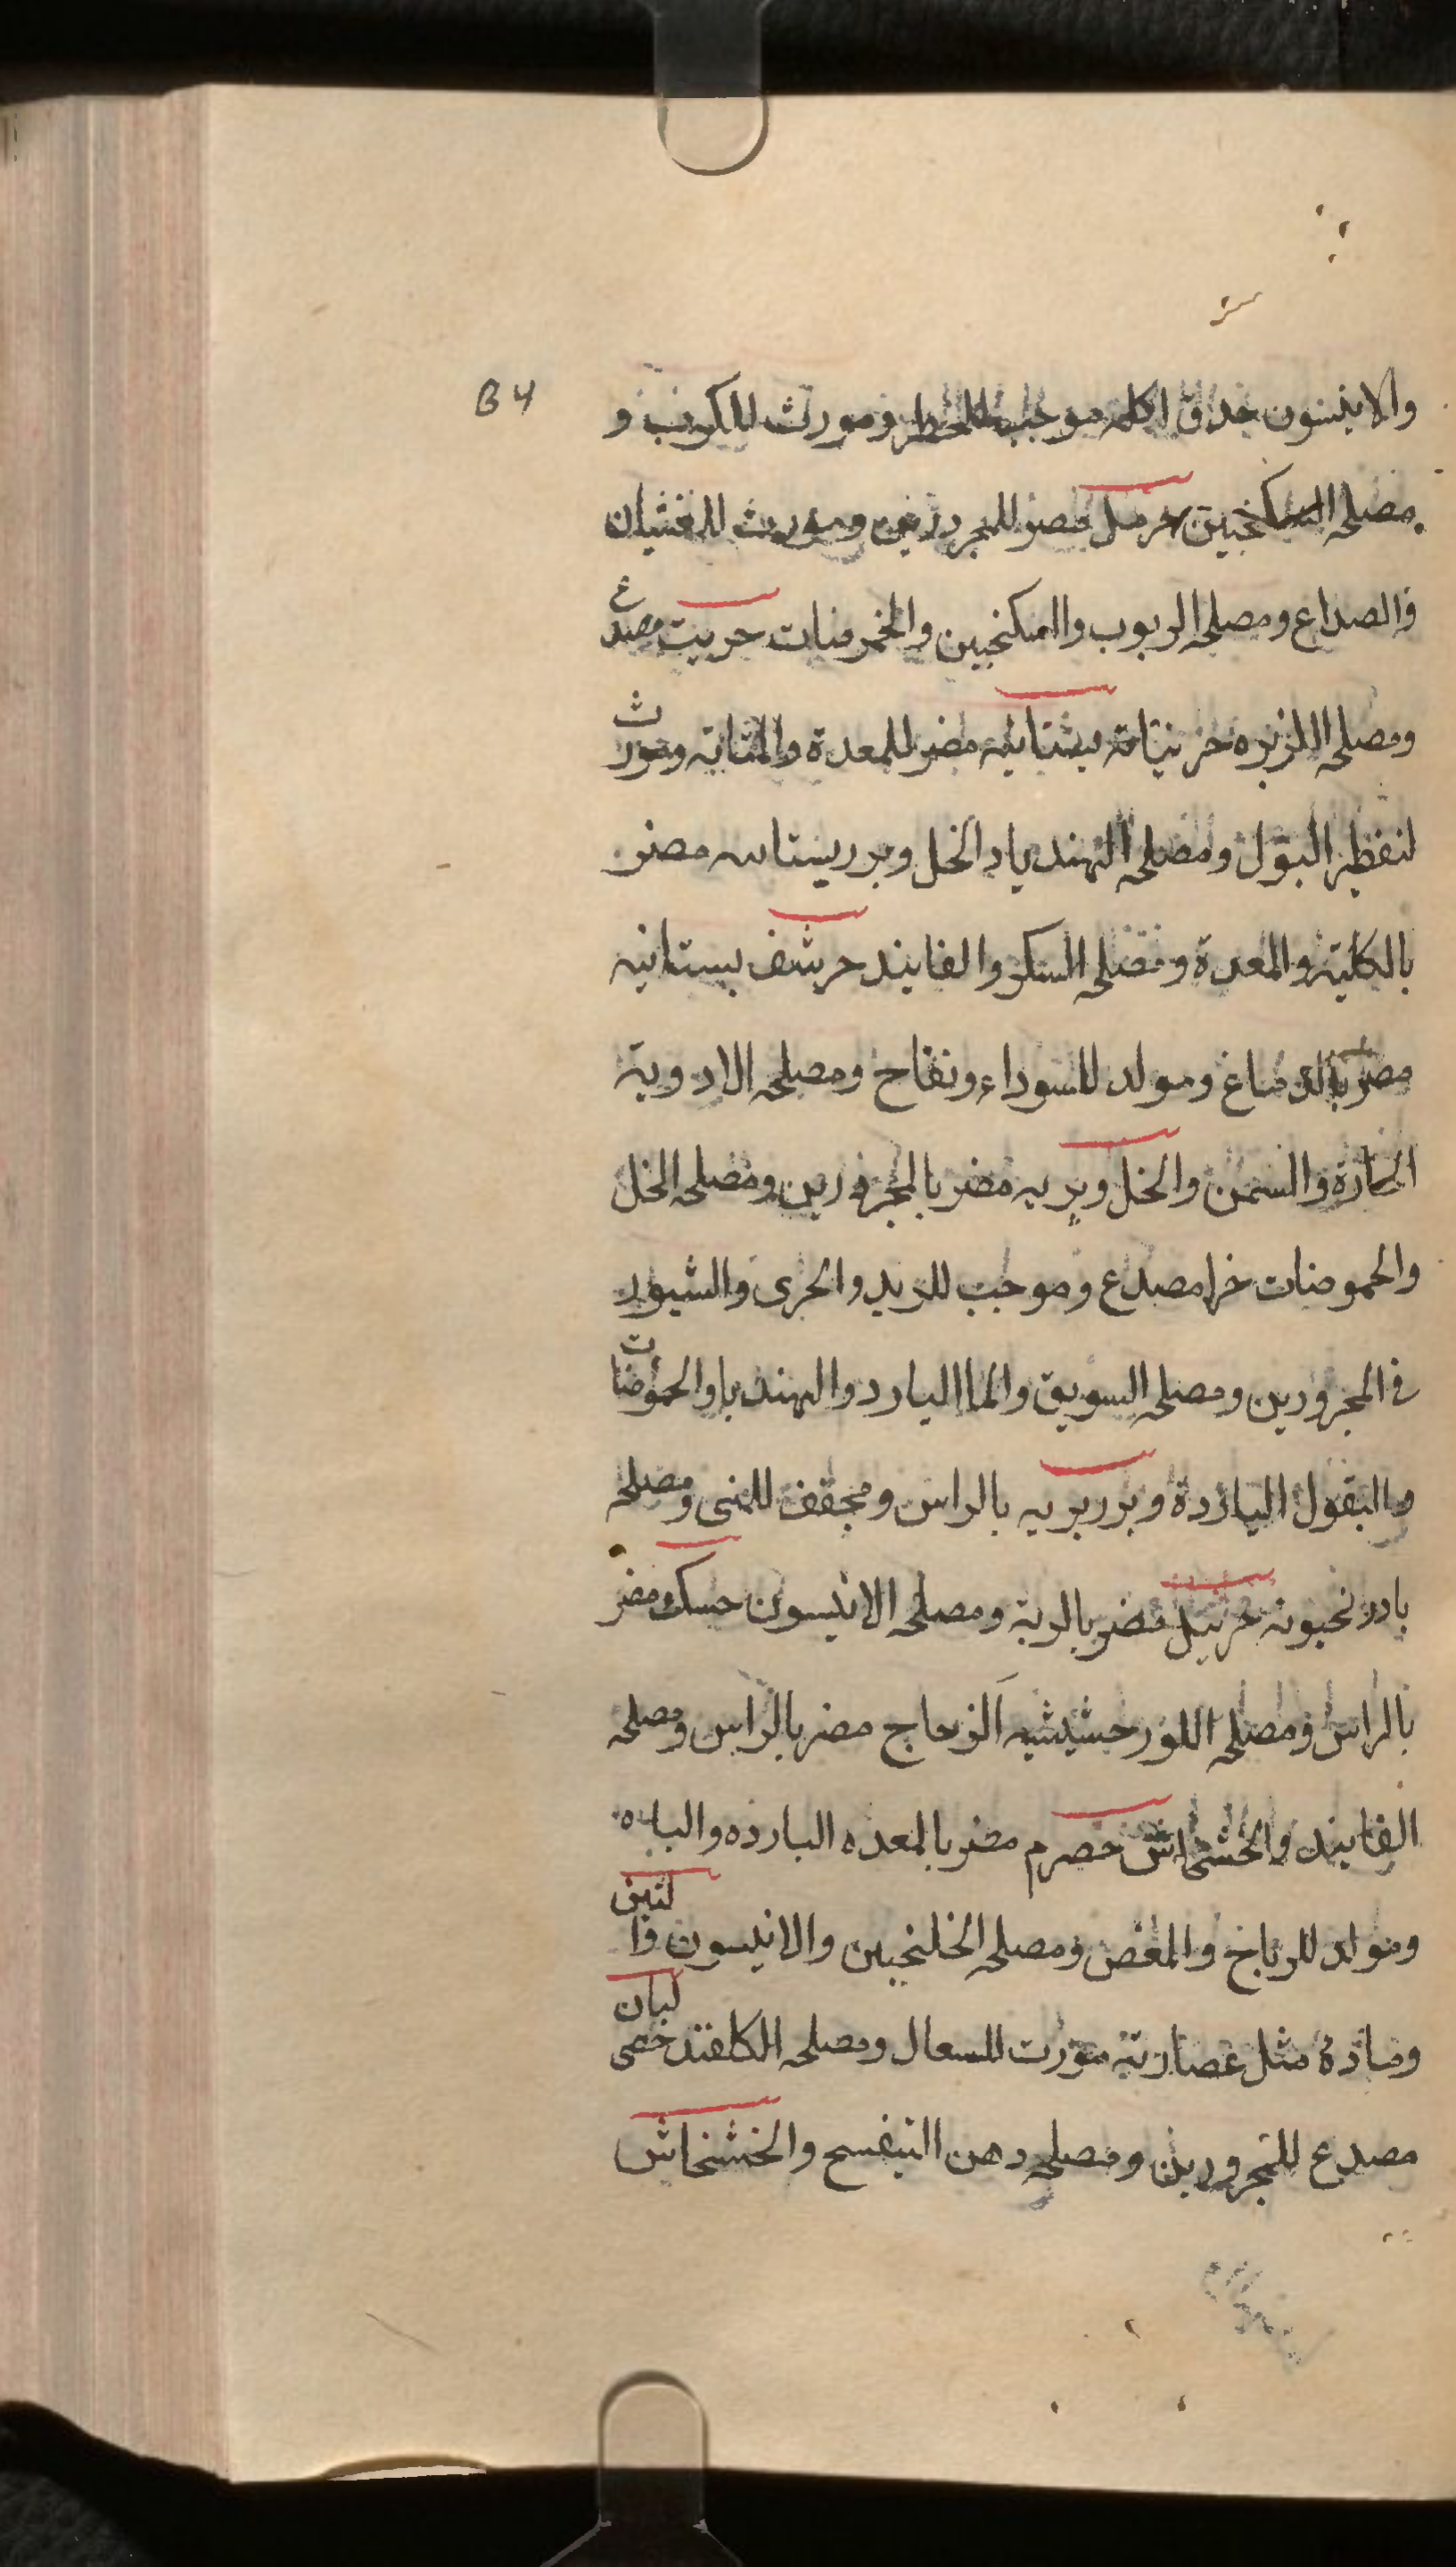 B4
والانيسون حداق اكله موجب للخطر ومورث للكرب و
مصلحه السكنجبين حرمل مضر للمحرورين ومورث للغثيان
والصداع ومصلحه الربوب والسكنجبين والحموضات حريت مصدع
ومصلحه الكزبره بستانيه مضر للمعدة والمثانه ومورث
لتقطير البول ومصلحه الهندبا والخل وبرر بستانيه مضر
بالكليه والمعدة ومصلحه السكر والفانيد حرشف بستانيه
مضر بالدماغ ومولد للسوداء ونفاخ ومصلحه الادوية
الحارة والسمن والخل وبريه مضر بالمحرورين ومصلحه الخل
والحموضات خرا مصدع وموجب للربو والحرى والشبور
فى المحرورين ومصلحه السويق والماالبارد والهندبا والحموضات
والبقول الباردة وبرر بريه بالراس ومجفف للمنى ومصلحه
بادرنجبونه حزنبل مضر بالرية ومصلحه الانيسون حسك ومضر
بالراس ومصلحه اللوز حشيشيه الزجاج مضر بالراس ومصلحه
الفانيد والخشخاش حصرم مضر بالمعده البارده والباه
ومولد للرياح والمغص ومصلحه الخلنجبين والانيسون والتين
ومادة مثل عصارته مورث للسعال ومصلحه الكلقند خصى لبان
مصدع للمحرورين ومصلحه دهن البنفسج والخشخاش